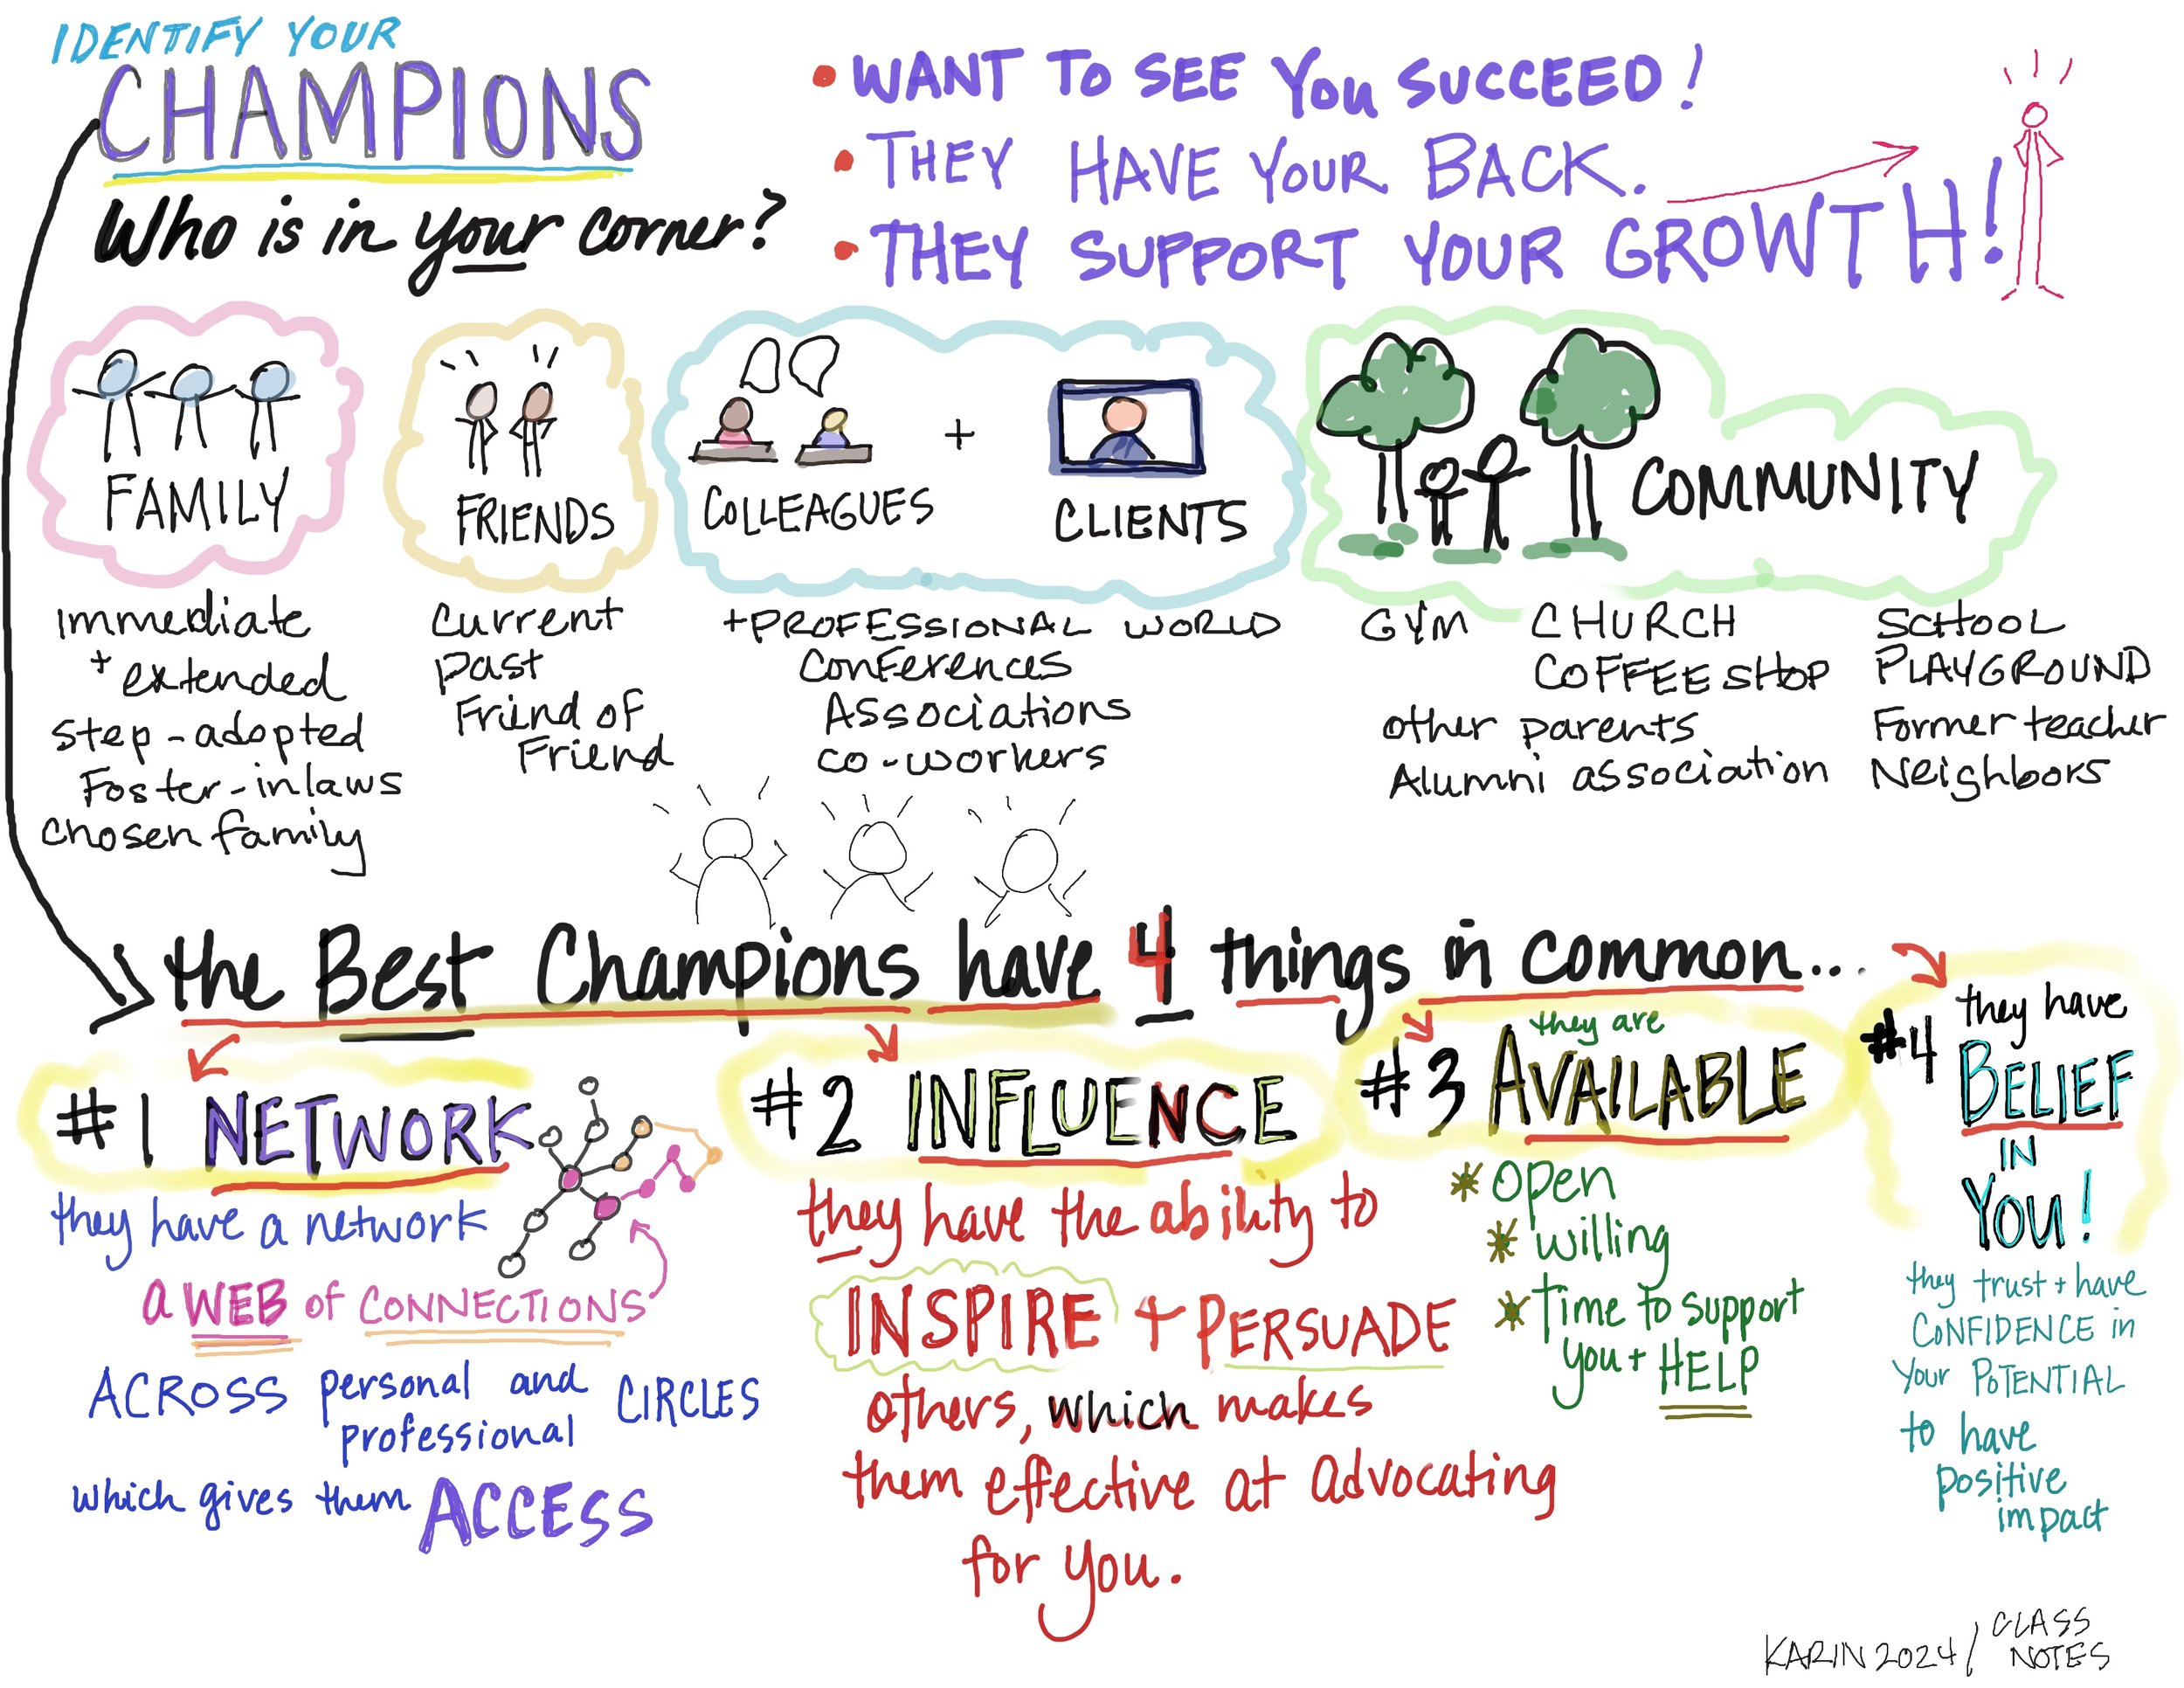 IDENTIFY YOUR
CHAMPIONS
Who is in your corner?
• WANT TO SEE YOU SUCCEED!
• THEY HAVE YOUR BACK.
• THEY SUPPORT YOUR GROWTH!
FAMILY
Immediate
+ extended
Step-adopted
Foster-inlaws
Chosen family
FRIENDS
Current
Past
Friind of
Friend
COLLEAGUES
+
CLIENTS
+PROFESSIONAL WORLD
Conferences
Associations
co-workers
COMMUNITY
GYM
CHURCH
COFFEE SHOP
other parents
Alumni association
SCHOOL
PLAYGROUND
Former teacher
Neighbors
the Best Champions have 4 things in common...
#1 NETWORK
they have a network
a WEB of CONNECTIONS
ACROSS personal and CIRCLES
professional
which gives them ACCESS
#2 INFLUENCE
they have the ability to
INSPIRE + PERSUADE
others, which makes
them effective at advocating
for you.
they are
#3 AVAILABLE
* open
* willing
* Time to support
you + HELP
#4 they have
BELIEF
IN
YOU!
they trust + have
CONFIDENCE in
Your POTENTIAL
to have
positive
impact
KARIN 2024 / CLASS
NOTES